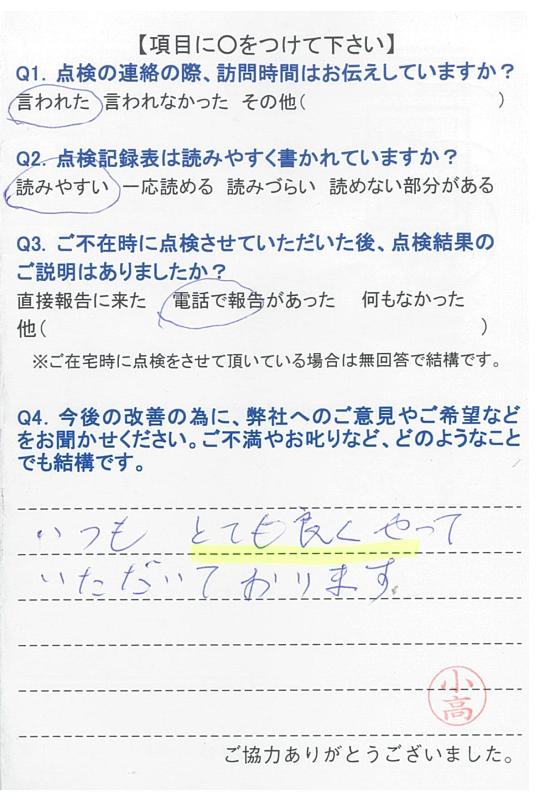 【項目に〇をつけて下さい】
Q1. 点検の連絡の際、訪問時間はお伝えしていますか？
言われた 言われなかった その他( )
Q2. 点検記録表は読みやすく書かれていますか？
読みやすい 一応読める 読みづらい 読めない部分がある
Q3. ご不在時に点検させていただいた後、点検結果の
ご説明はありましたか？
直接報告に来た 電話で報告があった 何もなかった
他( )
※ご在宅時に点検をさせて頂いている場合は無回答で結構です。
Q4. 今後の改善の為に、弊社へのご意見やご希望など
をお聞かせください。ご不満やお叱りなど、どのようなこと
でも結構です。
いつも とても良くやって
いただいております。
小高
ご協力ありがとうございました。